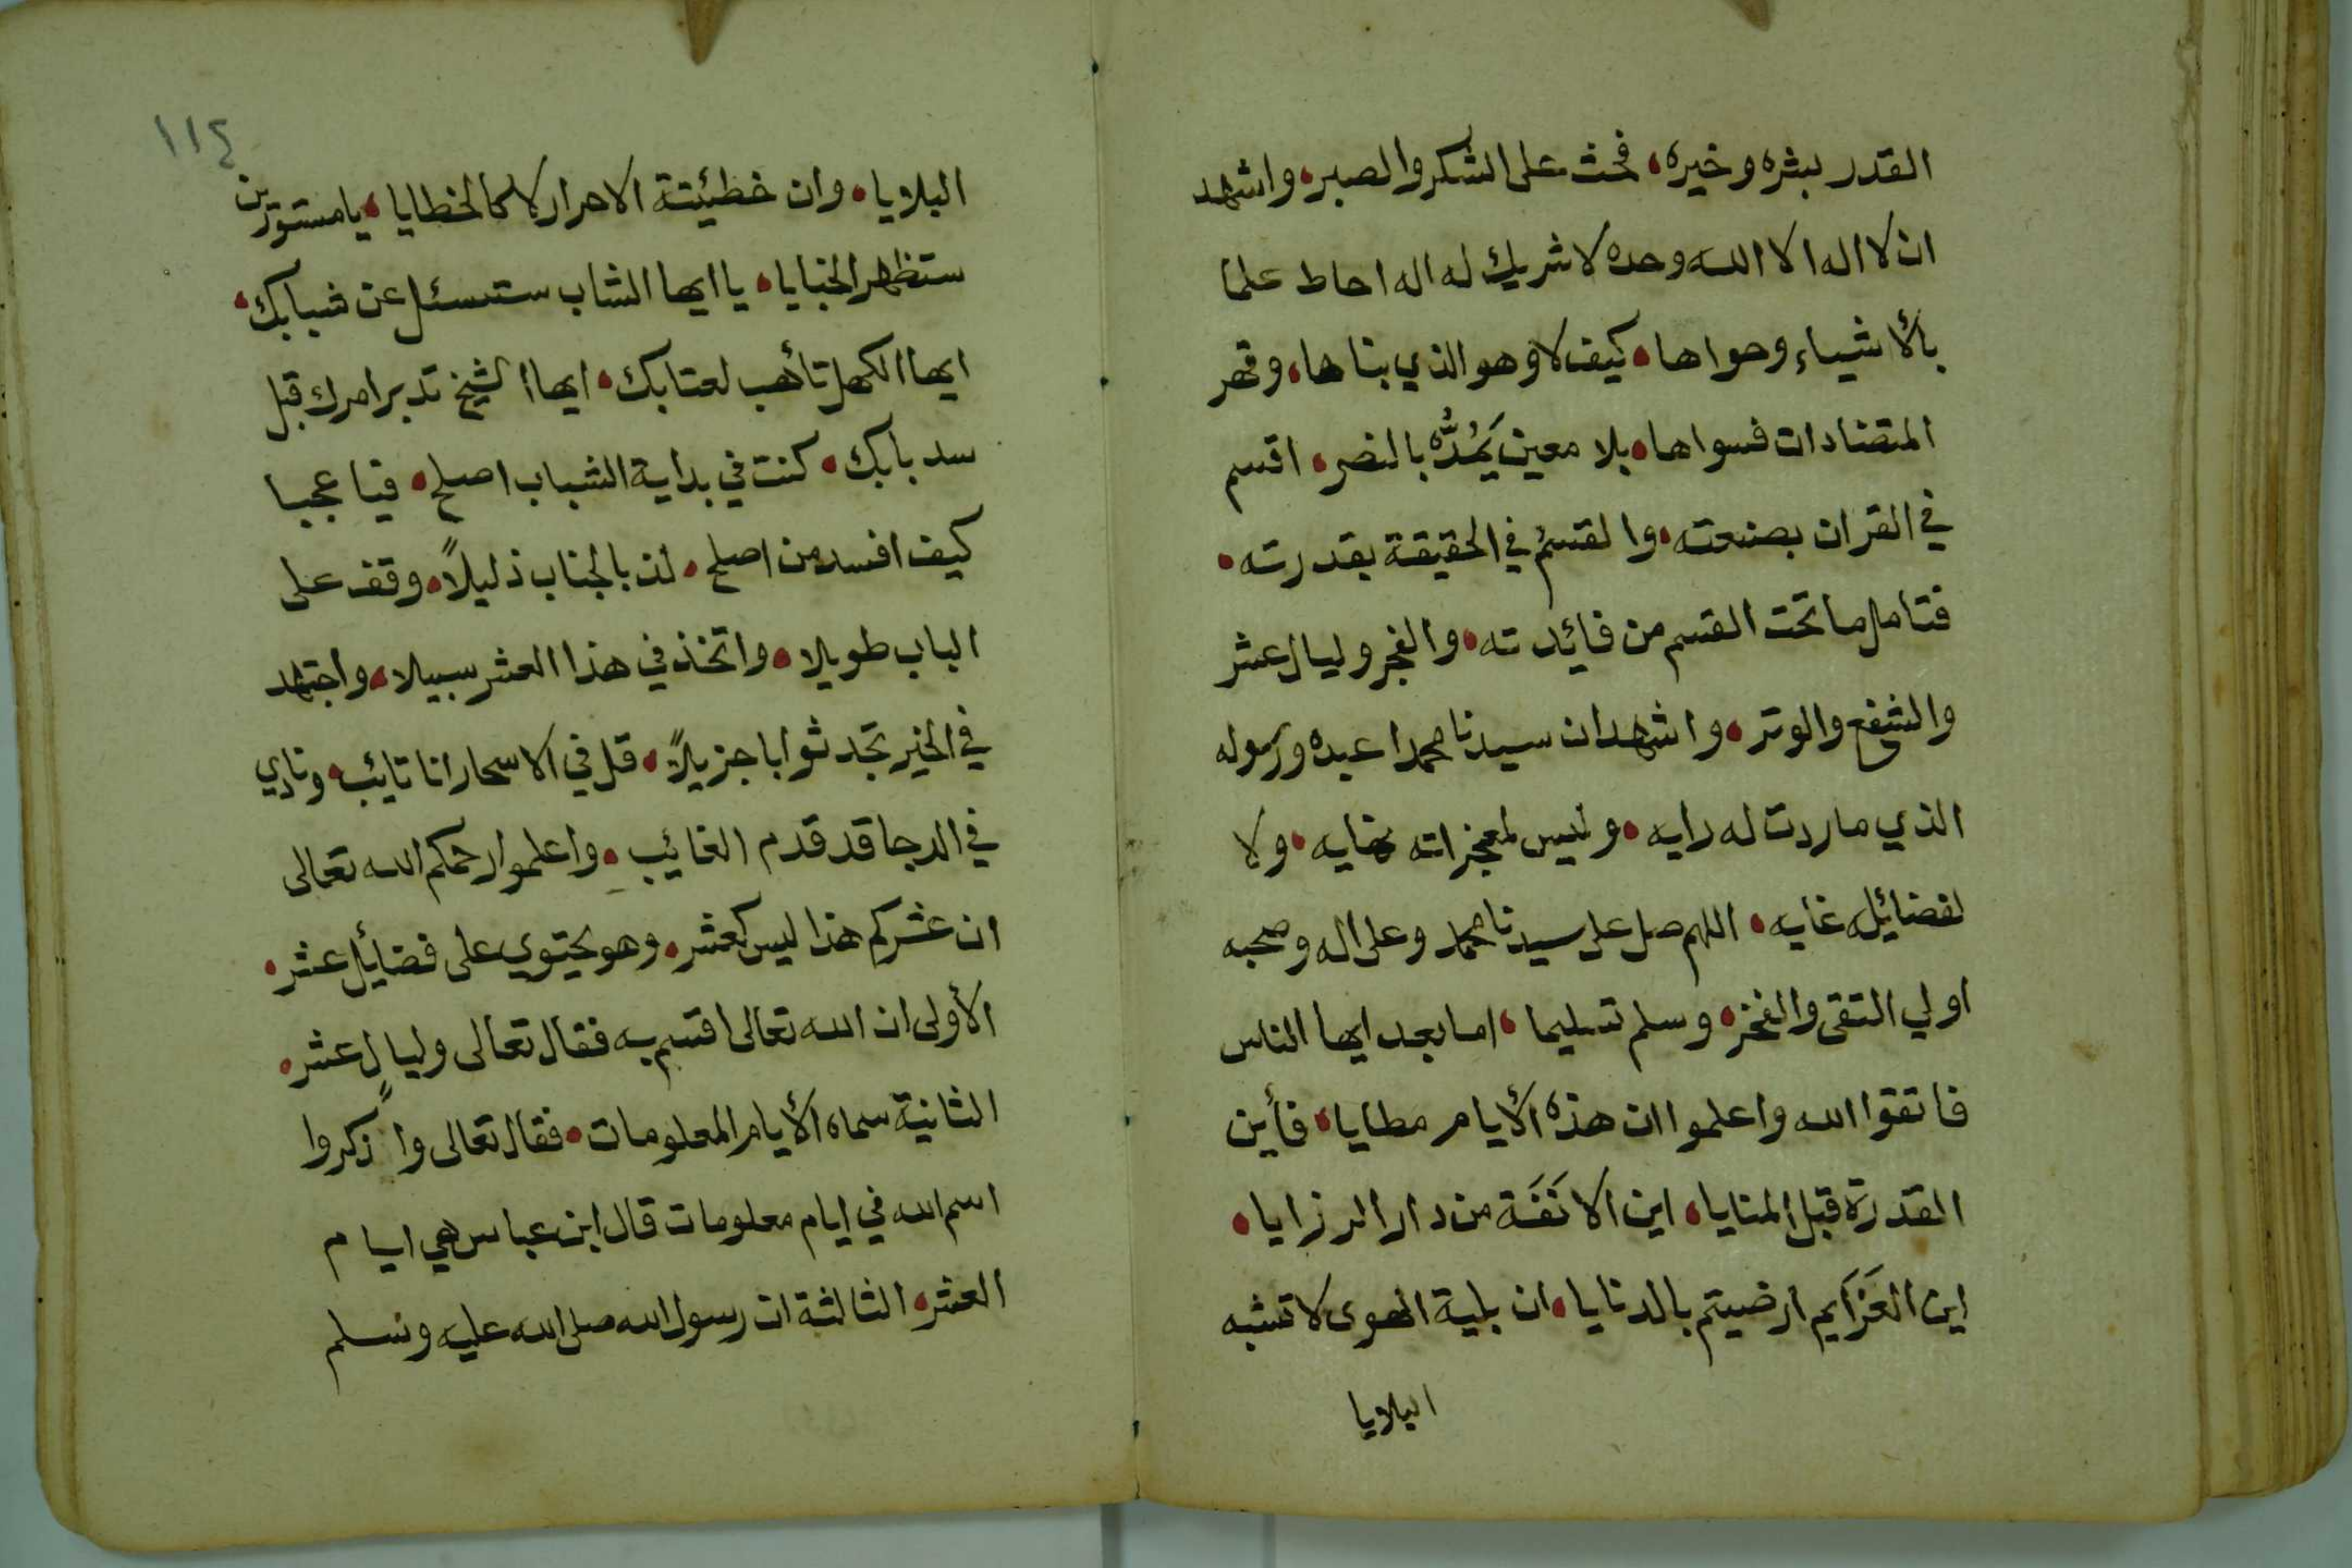 القدر بشره وخيره، فحث على الشكر والصبر، واشهد
ان لا اله الا الله وحده لا شريك له اله احاط علما
بالأشياء وحواها، كيف لا وهو الذي بناها، وقهر
المتضادات فسواها، بلا معين يَمُدُّه بالنصر، اقسم
في القران بصنعته، والقسمُ في الحقيقة بقدرته،
فتامل ما تحت القسم من فائدته، والفجر وليال عشر
والشفع والوتر، واشهد ان سيدنا محمدا عبده ورسوله
الذي ما ردت له رايه، وليس لمعجزاته نهايه، ولا
لفضائله غايه، اللهم صل على سيدنا محمد وعلى اله وصحبه
اولي التقى والفخر، وسلم تسليما، اما بعد ايها الناس
فاتقوا الله واعلموا ان هذه الأيام مطايا، فأين
القدرة قبل المنايا، اين الانَفَة من دار الرزايا،
اين العَزَايم ارضيتم بالدنايا، ان بلية الهوى لا تشبه
البلايا
١١٤
البلايا، وان خطيئتة الاحرار لا كالخطايا، يا مستورين
ستظهر الخبايا، يا ايها الشاب ستسئل عن شبابك،
ايها الكهل تأهب لعتابك، ايها الشيخ تدبر امرك قبل
سد بابك، كنت في بداية الشباب اصلح، فيا عجبا
كيف افسد من اصلح، لذ بالجناب ذليلاً، وقف على
الباب طويلا، واتخذ في هذا العشر سبيلا، واجتهد
في الخير تجد ثوابا جزيلاً، قل في الاسحار انا تائب، ونادي
في الدجا قد قدم الغائب، واعلموا رحمكم الله تعالى
ان عشركم هذا ليس كعشر، وهو يحتوي على فضائل عشر،
الأولى ان الله تعالى اقسم به فقال تعالى وليالٍ عشر،
الثانية سماه الأيام المعلومات، فقال تعالى واذكروا
اسم الله في ايام معلومات قال ابن عباس هي ايام
العشر، الثالثة ان رسول الله صلى الله عليه وسلم